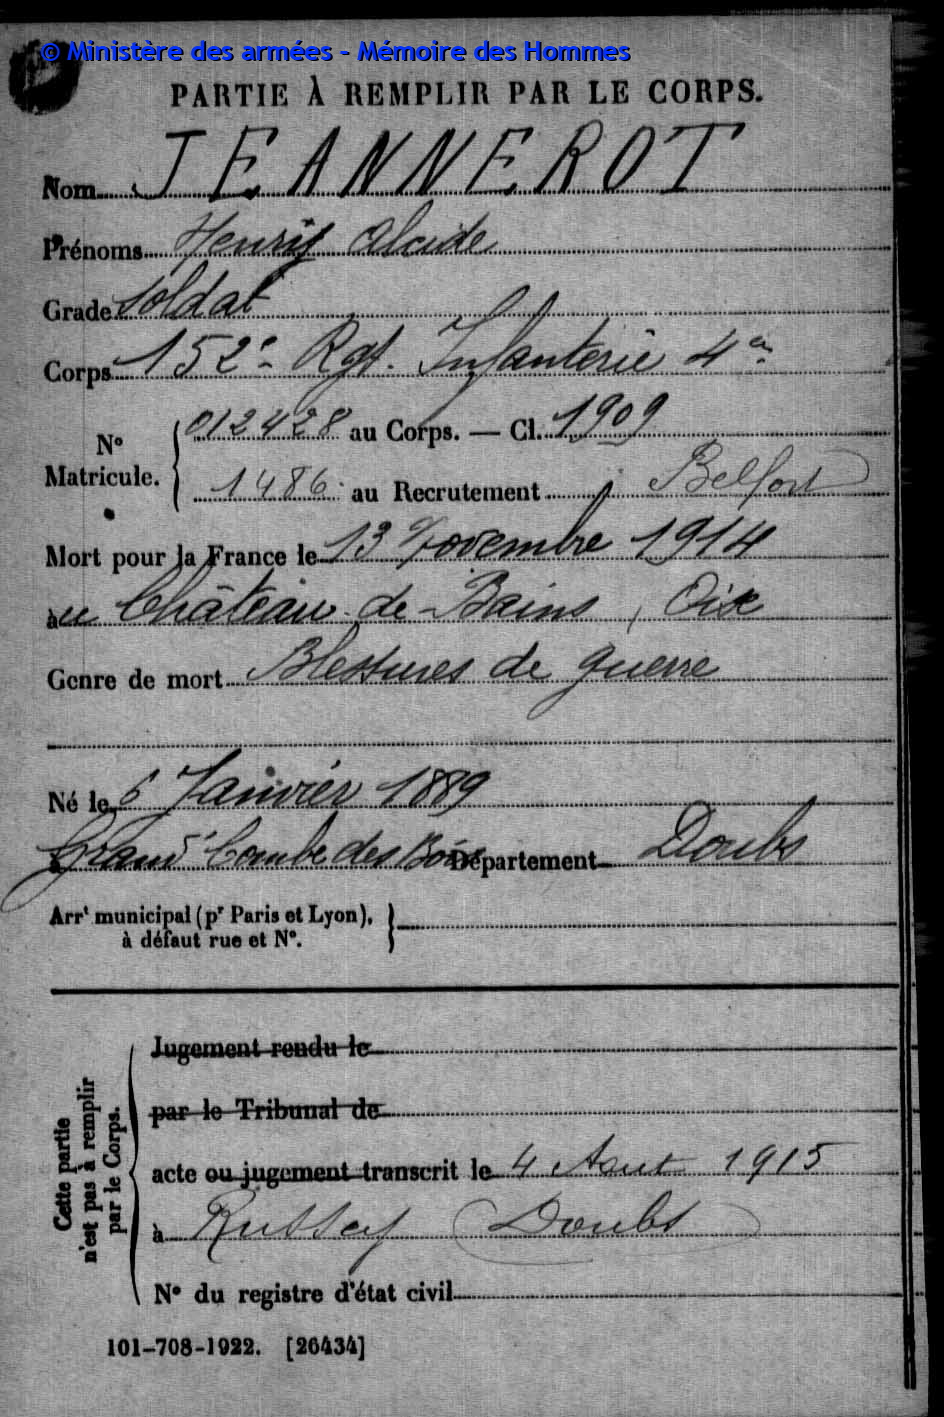 © Ministère des armées - Mémoire des Hommes
PARTIE À REMPLIR PAR LE CORPS.
Nom JEANNEROT
Prénoms Henriy Alcide
Grade Soldat
Corps 152e Rgt. Infanterie 4
N° Matricule. 012428 au Corps. — Cl. 1909
1486 au Recrutement Belfort
Mort pour la France le 13 Novembre 1914
au Château de Bains, Oise
Genre de mort Blessures de guerre
Né le 6 Janvier 1889
Grand' Combe des Bois Département Doubs
Arrt municipal (pr Paris et Lyon),
à défaut rue et N°.
Cette partie
n'est pas à remplir
par le Corps.
Jugement rendu le
par le Tribunal de
acte ou jugement transcrit le 4 Aout 1915
à Russey (Doubs)
N° du registre d'état civil
101-708-1922. [26434]